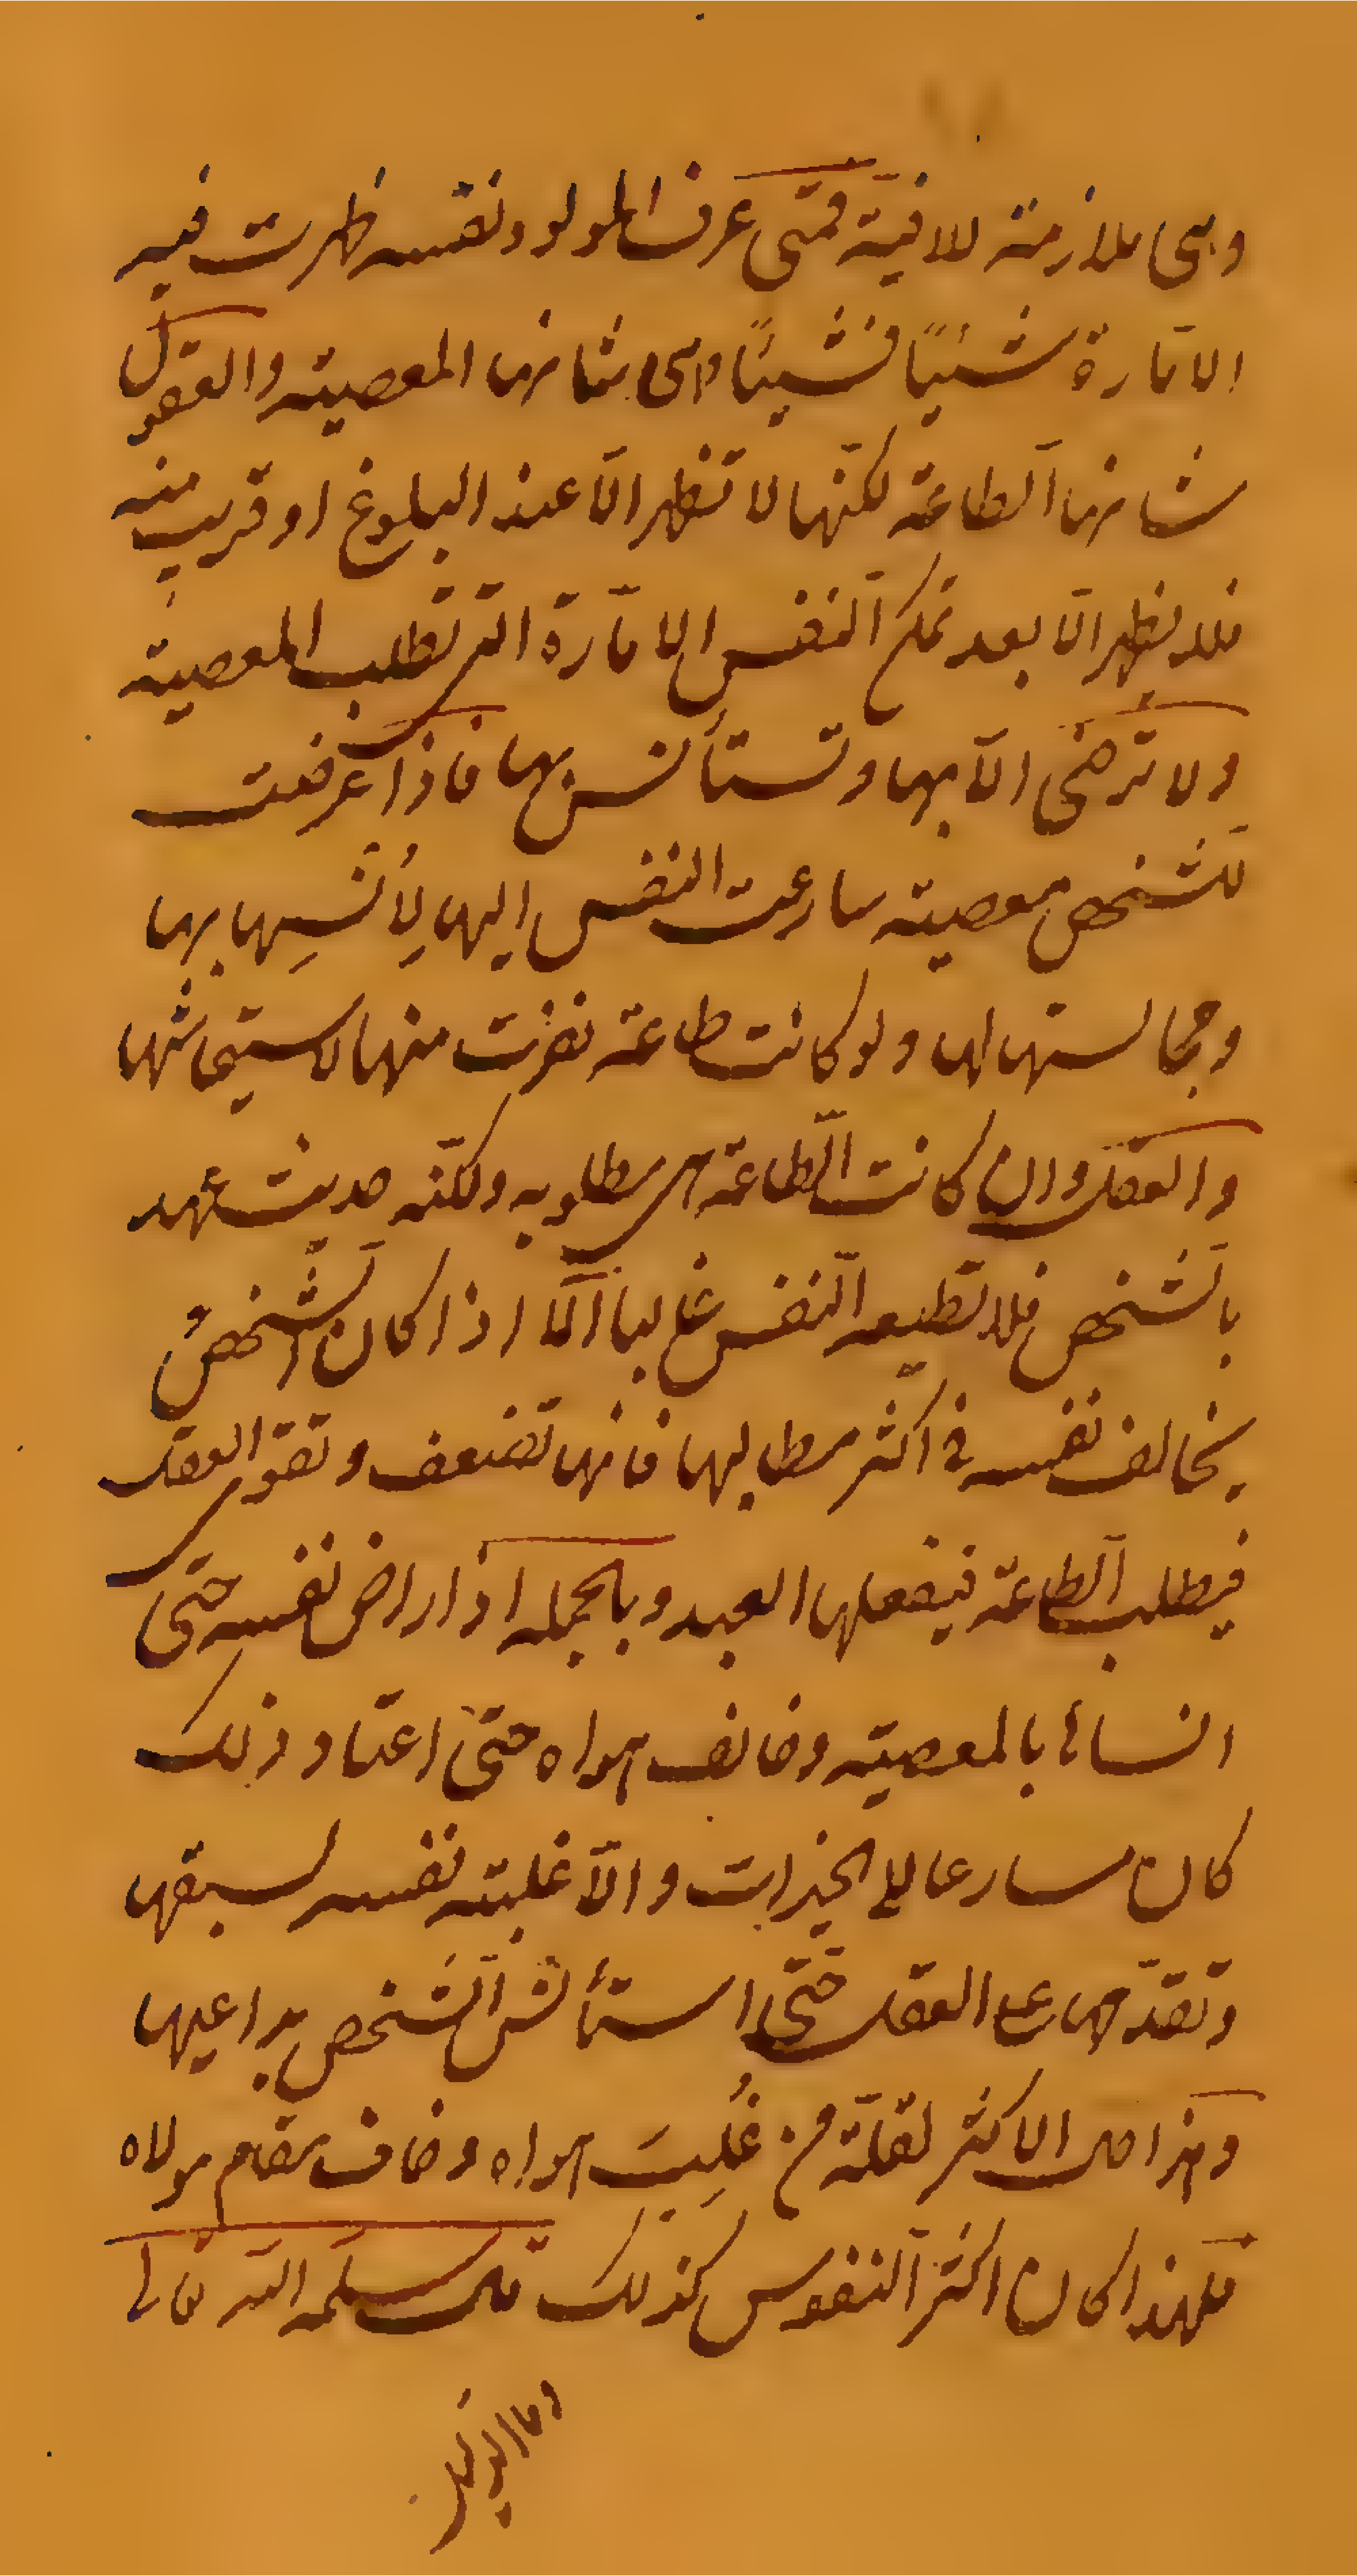 وهى ملازمة للافية فمتى عرف المولود نفسه ظهرت فيه
الامّارة شيئاً فشيئاً وهى شانها المعصية والعقول
شانها الطاعة لكنّها لا تظهر الّا عند البلوغ او قريب منه
فلا يظهر الّا بعد تمكن النفس الامّارة التى تطلب المعصية
ولا ترضى الّا بها وتستأنس بها فاذا عرضت
للشخص معصية سارعت النفس اليها لِأُنسِها بها
ومجالستها لها ولو كانت طاعة نفرت منها لاستيحاشها
والعقل وان كانت الطاعة هى مطلوبه ولكنّه حديث عهد
بالشّخص فلا تطيعه النّفس غالبا الّا اذا كان الشّخصُ
يخالف نفسه فى اكثر مطالبها فانها تضعف وتقوى العقل
فيطلب الطاعة فيفعلها العبد وبالجملة اذا راض نفسه حتى
انساها بالمعصية وخالف هواه حتى اعتاد ذلك
كان مسارعا الى الخيرات والّا غلبته نفسه لسبقها
وتقدّمها على العقل حتّى استأنس الشّخص بداعيها
وهذا هو الاكثر لقلّة من غُلِبَ هواه وخاف مقام مولاه
فلهذا كان اكثر النفوس كذلك قال سلمه الله تعالى
وما الدليل